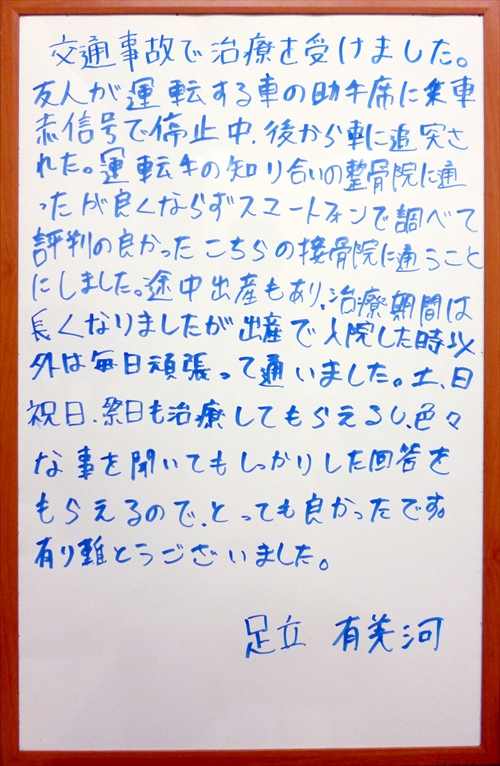 交通事故で治療を受けました。
友人が運転する車の助手席に乗車
赤信号で停止中、後から車に追突さ
れた。運転手の知り合いの整骨院に通
ったが良くならずスマートフォンで調べて
評判の良かったこちらの接骨院に通うこと
にしました。途中出産もあり、治療期間は
長くなりましたが出産で入院した時以
外は毎日頑張って通いました。土、日
祝日、祭日も治療してもらえるし、色々
な事を聞いてもしっかりした回答を
もらえるので、とっても良かったです。
有り難とうございました。
足立 有美河